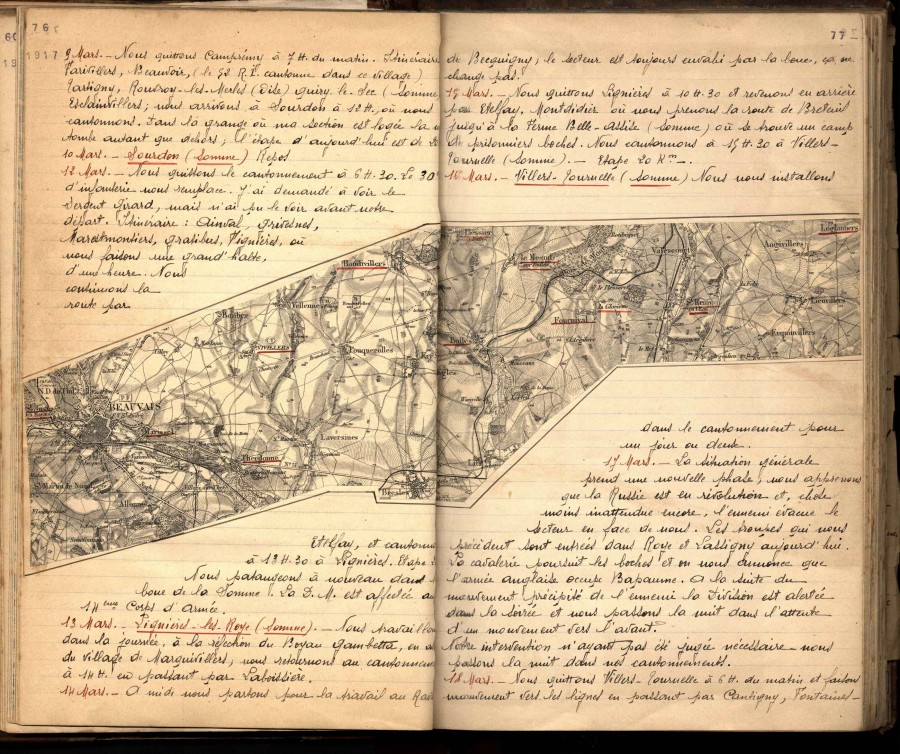 76
1917
9 Mars. - Nous quittons Camprémy à 7 H. du matin. Itinéraire
Farivillers, Beauvoir, (le 52 R.I. cantonne dans ce village)
Tartigny, Rouvroy-les-Merles (Oise) Quiry-le-Sec (Somme
Esclainvillers; nous arrivons à Sourdon à 12 H. où nous
cantonnons. Dans la grange où ma section est logée la
tombe autant que dehors; l'étape d'aujourd'hui est de
10 Mars. - Sourdon (Somme) Repos
12 Mars. - Nous quittons le cantonnement à 6 H. 30. Le 30e
d'infanterie nous remplace. J'ai demandé à voir le
Sergent Girard, mais n'ai pu le voir avant notre
départ. Itinéraire : Ainval, Grivesnes,
Marestmontiers, Gratibus, Fignières, où
nous faisons une grand'halte,
d'une heure. Nous
continuons la
route par
Etelfay, et cantonn
à 13 H. 30 à Lignières. Etape
Nous pataugeons à nouveau dans
boue de la Somme. La D.M. est affectée au
14ème Corps d'Armée.
13 Mars. - Lignières-les-Roye (Somme). - Nous travaillo
dans la journée, à la réfection du Boyau Gambetta, en a
du village de Marquivillers, nous retournons au cantonnem
à 14 H. en passant par Laboissière.
14 Mars. - A midi nous partons pour le travail au
77
de Becquigny; le secteur est toujours envahi par la boue, ça ne
change pas.
15 Mars. - Nous quittons Lignières à 10 H. 30 et revenons en arrière
par Etelfay, Montdidier où nous prenons la route de Breteuil
jusqu'à la Ferme Belle-Assise (Somme) où se trouve un camp
de prisonniers boches. Nous cantonnons à 15 H. 30 à Villers-
Tournelle (Somme). - Etape 20 Km -.
16 Mars. - Villers-Tournelle (Somme) Nous nous installons
dans le cantonnement pour
un jour ou deux.
17 Mars. - La situation générale
prend une nouvelle phase, nous apprenons
que la Russie est en révolution et, chose
moins inattendue encore, l'ennemi évacue le
secteur en face de nous. Les troupes qui nous
précèdent sont entrées dans Roye et Lassigny aujourd'hui.
La cavalerie poursuit les boches et on nous annonce que
l'armée anglaise occupe Bapaume. A la suite du
mouvement précipité de l'ennemi la Division est alertée
dans la soirée et nous passons la nuit dans l'attente
d'un mouvement vers l'avant.
Notre intervention n'ayant pas été jugée nécessaire nous
passons la nuit dans nos cantonnements.
18 Mars. - Nous quittons Villers-Tournelle à 6 H. du matin et faisons
mouvement vers les lignes en passant par Cantigny, Fontaines-
BEAUVAIS
Marissel
Therdonne
Laversines
Allonne
Bresles
Fouquerolles
Velennes
Haudivillers
Bulles
Fournival
Valescourt
Angivillers
Lieuvillers
Erquinvillers
Léglantiers